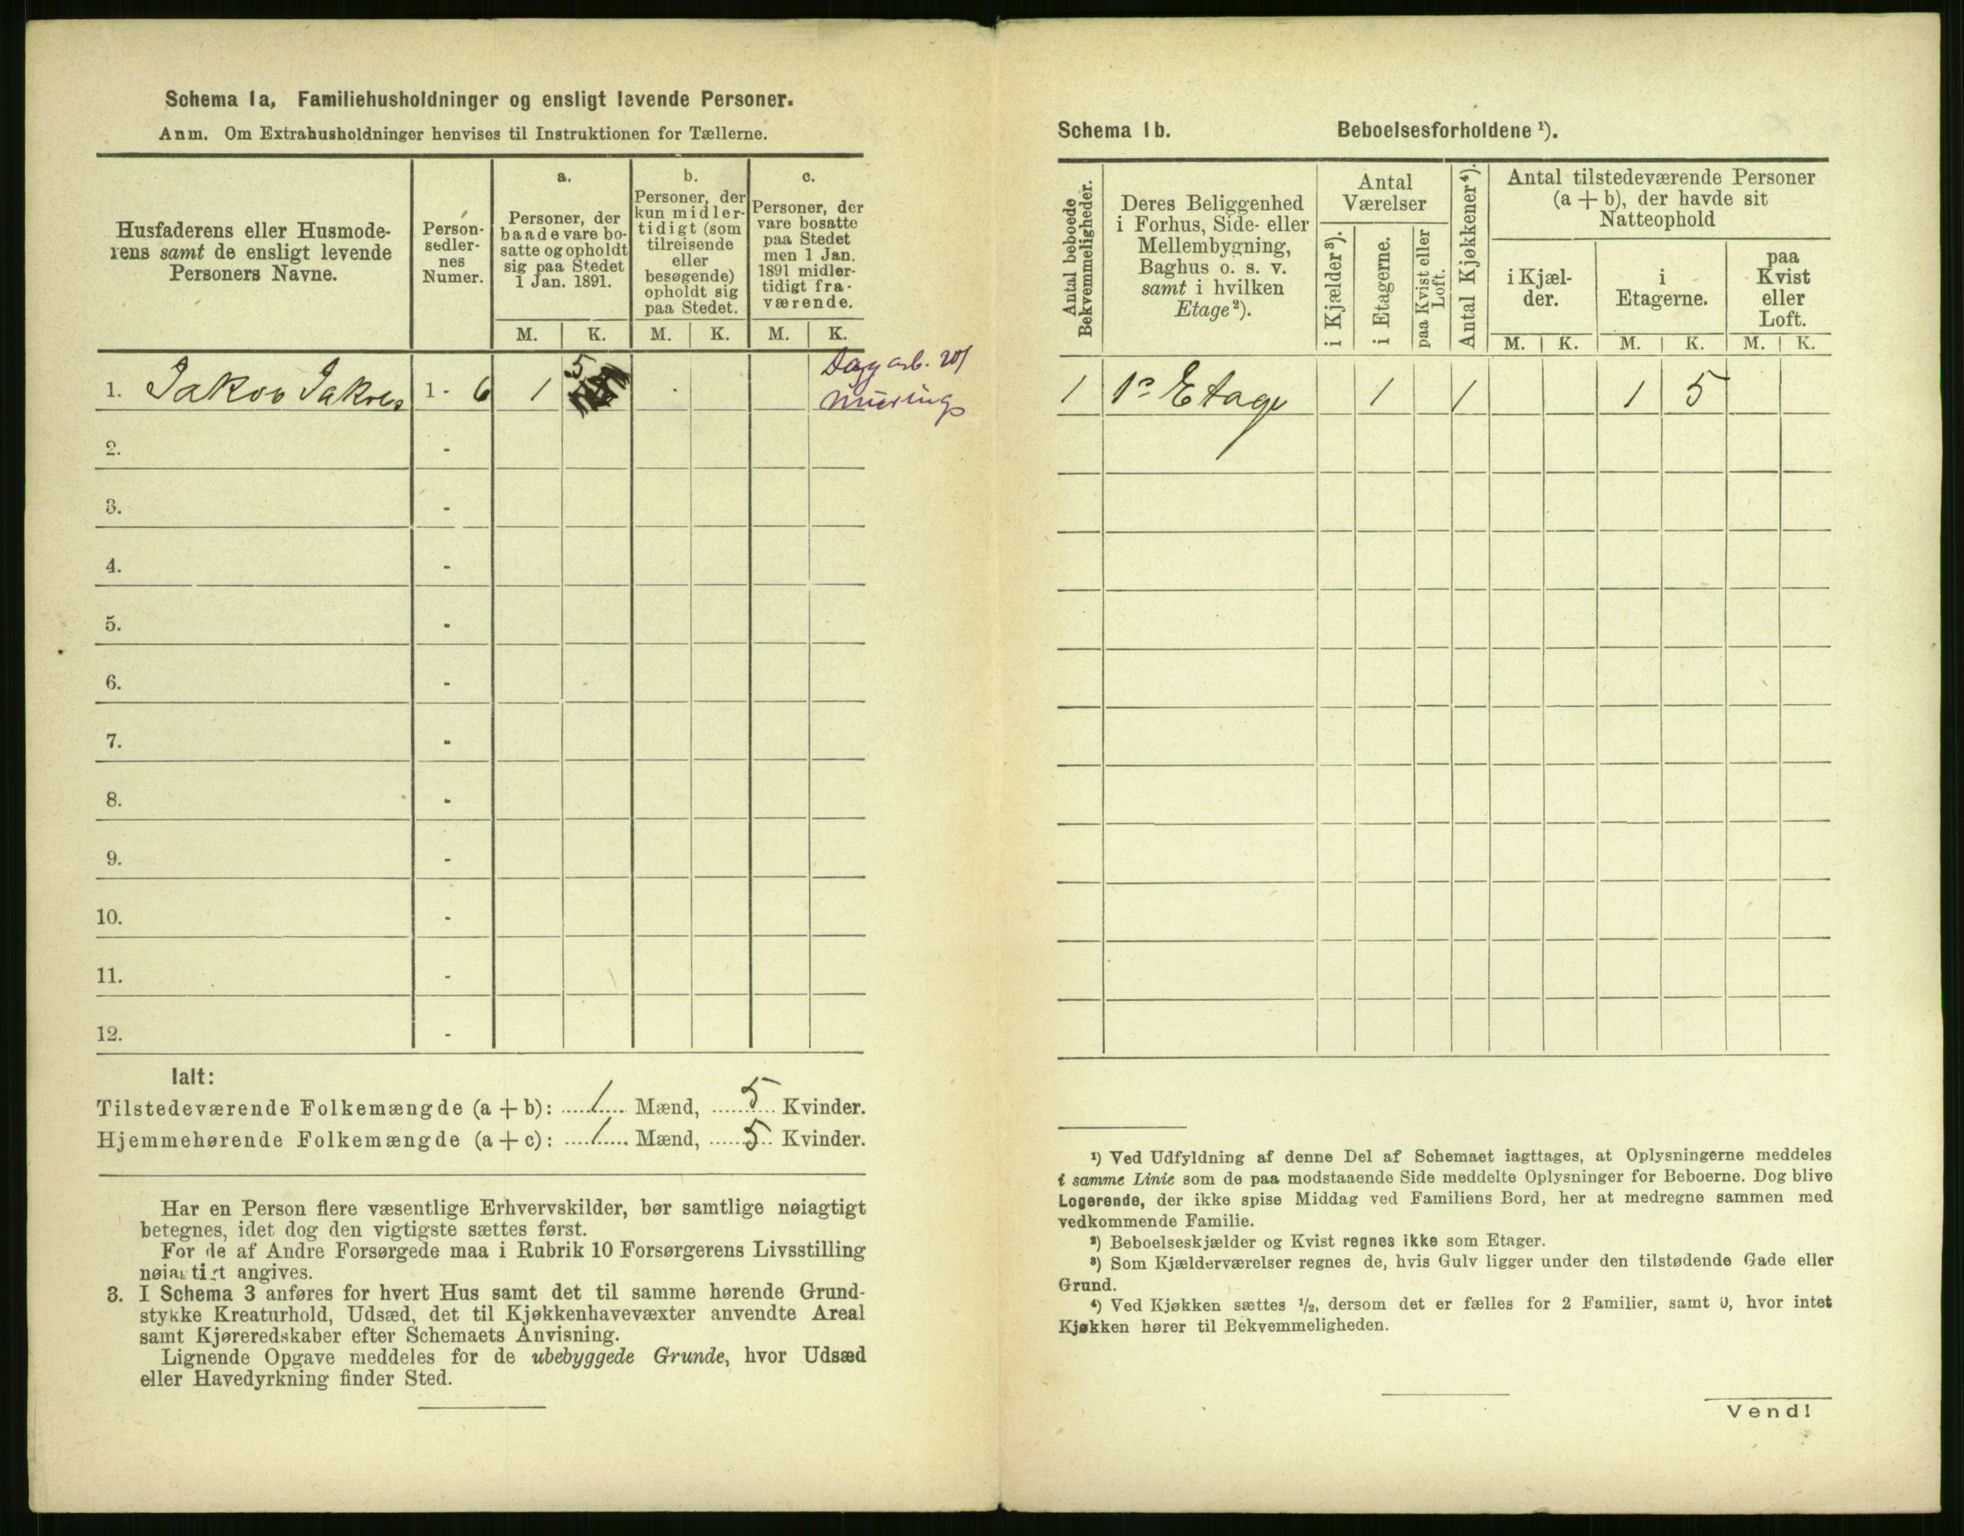 Schema 1a, Familiehusholdninger og ensligt levende Personer.
Anm. Om Extrahusholdninger henvises til Instruktionen for Tællerne.
Husfaderens eller Husmode-
rens samt de ensligt levende
Personers Navne.
Person-
sedler-
nes
Numer.
a.
Personer, der
baade vare bo-
satte og opholdt
sig paa Stedet
1 Jan. 1891.
M. K.
b.
Personer, der
kun midler-
tidigt (som
tilreisende
eller
besøgende)
opholdt sig
paa Stedet.
M. K.
c.
Personer, der
vare bosatte
paa Stedet
men 1 Jan.
1891 midler-
tidigt fra-
værende.
M. K.
1. Jakob 1 - 6 1 5
Dagarb.
2. -
3. -
4. -
5. -
6. -
7. -
8. -
9. -
10. -
11. -
12. -
Ialt:
Tilstedeværende Folkemængde (a + b): 1 Mænd, 5 Kvinder.
Hjemmehørende Folkemængde (a + c): 1 Mænd, 5 Kvinder.
Har en Person flere væsentlige Erhvervskilder, bør samtlige nøiagtigt
betegnes, idet dog den vigtigste sættes først.
For de af Andre Forsørgede maa i Rubrik 10 Forsørgerens Livsstilling
nøiagtigt angives.
3. I Schema 3 anføres for hvert Hus samt det til samme hørende Grund-
stykke Kreaturhold, Udsæd, det til Kjøkkenhavevæxter anvendte Areal
samt Kjøreredskaber efter Schemaets Anvisning.
Lignende Opgave meddeles for de ubebyggede Grunde, hvor Udsæd
eller Havedyrkning finder Sted.
Schema 1b. Beboelsesforholdene ¹).
Antal beboede
Bekvemmeligheder.
Deres Beliggenhed
i Forhus, Side- eller
Mellembygning,
Baghus o. s. v.
samt i hvilken
Etage²).
Antal
Værelser
i Kjælder³).
i Etagerne.
paa Kvist eller
Loft.
Antal Kjøkkener⁴).
Antal tilstedeværende Personer
(a + b), der havde sit
Natteophold
i Kjæl-
der.
i
Etagerne.
paa
Kvist
eller
Loft.
M. K. M. K. M. K.
1 1ᵉ Etage 1 1 1 5
¹) Ved Udfyldning af denne Del af Schemaet iagttages, at Oplysningerne meddeles
i samme Linie som de paa modstaaende Side meddelte Oplysninger for Beboerne. Dog blive
Logerende, der ikke spise Middag ved Familiens Bord, her at medregne sammen med
vedkommende Familie.
²) Beboelseskjælder og Kvist regnes ikke som Etager.
³) Som Kjælderværelser regnes de, hvis Gulv ligger under den tilstødende Gade eller
Grund.
⁴) Ved Kjøkken sættes ½, dersom det er fælles for 2 Familier, samt 0, hvor intet
Kjøkken hører til Bekvemmeligheden.
Vend!